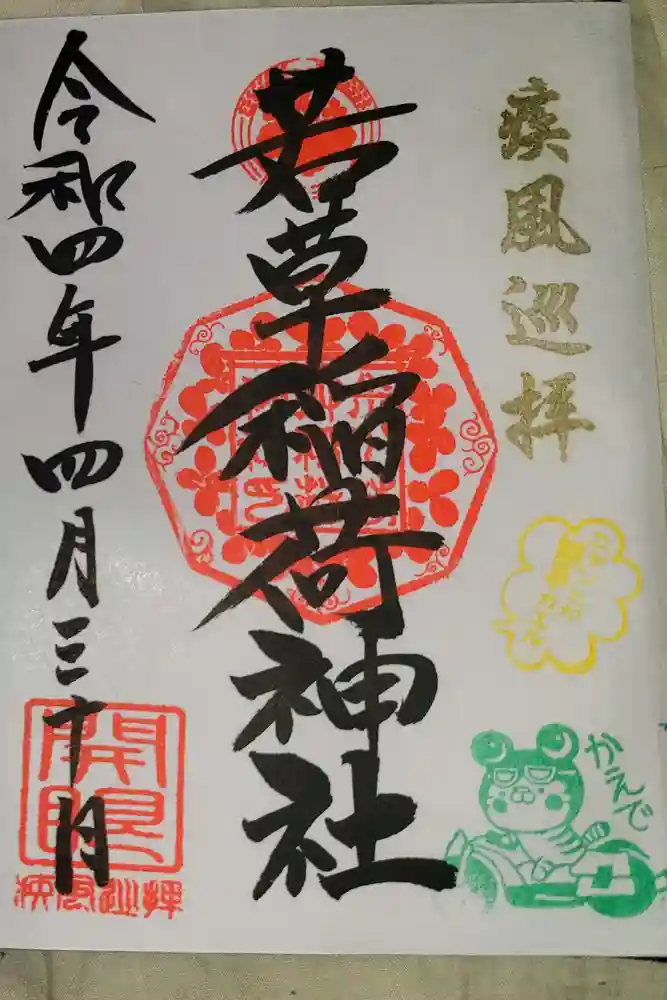 疾風巡拝
若草稲荷神社
令和四年四月三十日
開眼
疾風巡拝
かえで